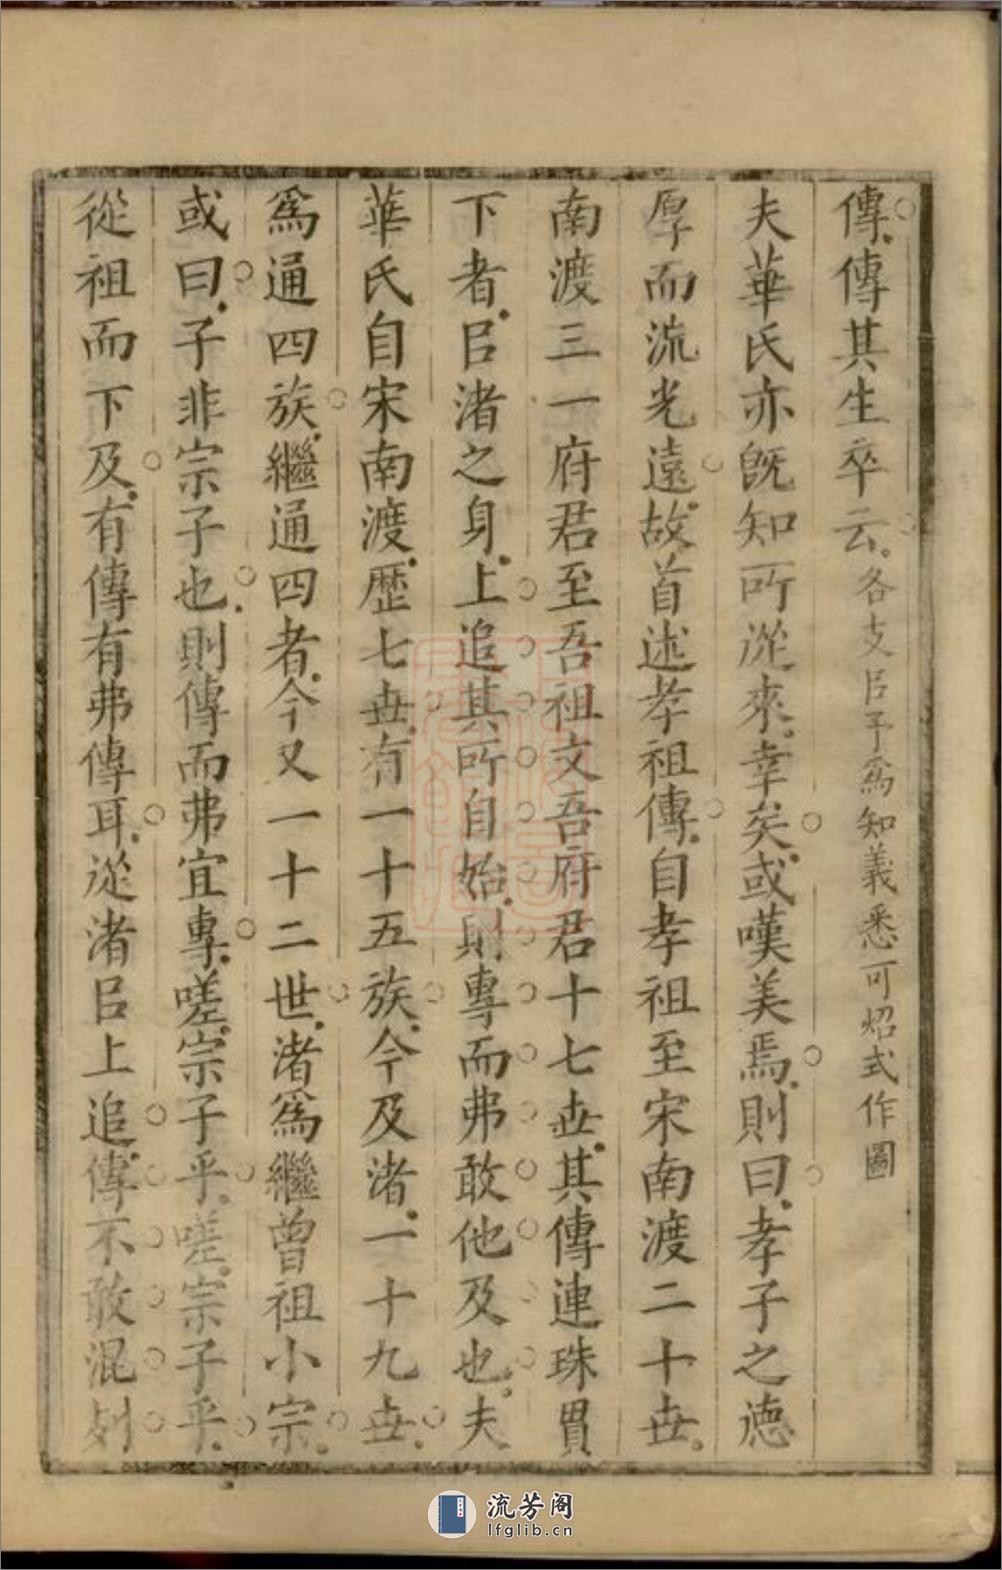 傳傳其生卒云各支㠯予爲知義悉可炤式作圖
夫華氏亦旣知所從來幸矣或嘆美焉則曰孝子之德
厚而流光遠故首述孝祖傳自孝祖至宋南渡二十世
南渡三一府君至吾祖文吾府君十七世其傳連珠貫
下者㠯渚之身上追其所自始則專而弗敢他及也夫
華氏自宋南渡歷七世有一十五族今及渚一十九世
爲通四族繼通四者今又一十二世渚爲繼曾祖小宗
或曰子非宗子也則傳而弗宜專嗟宗子乎嗟宗子乎
從祖而下及有傳有弗傳耳從渚㠯上追傳不敢混列
流芳阁
lfglib.cn